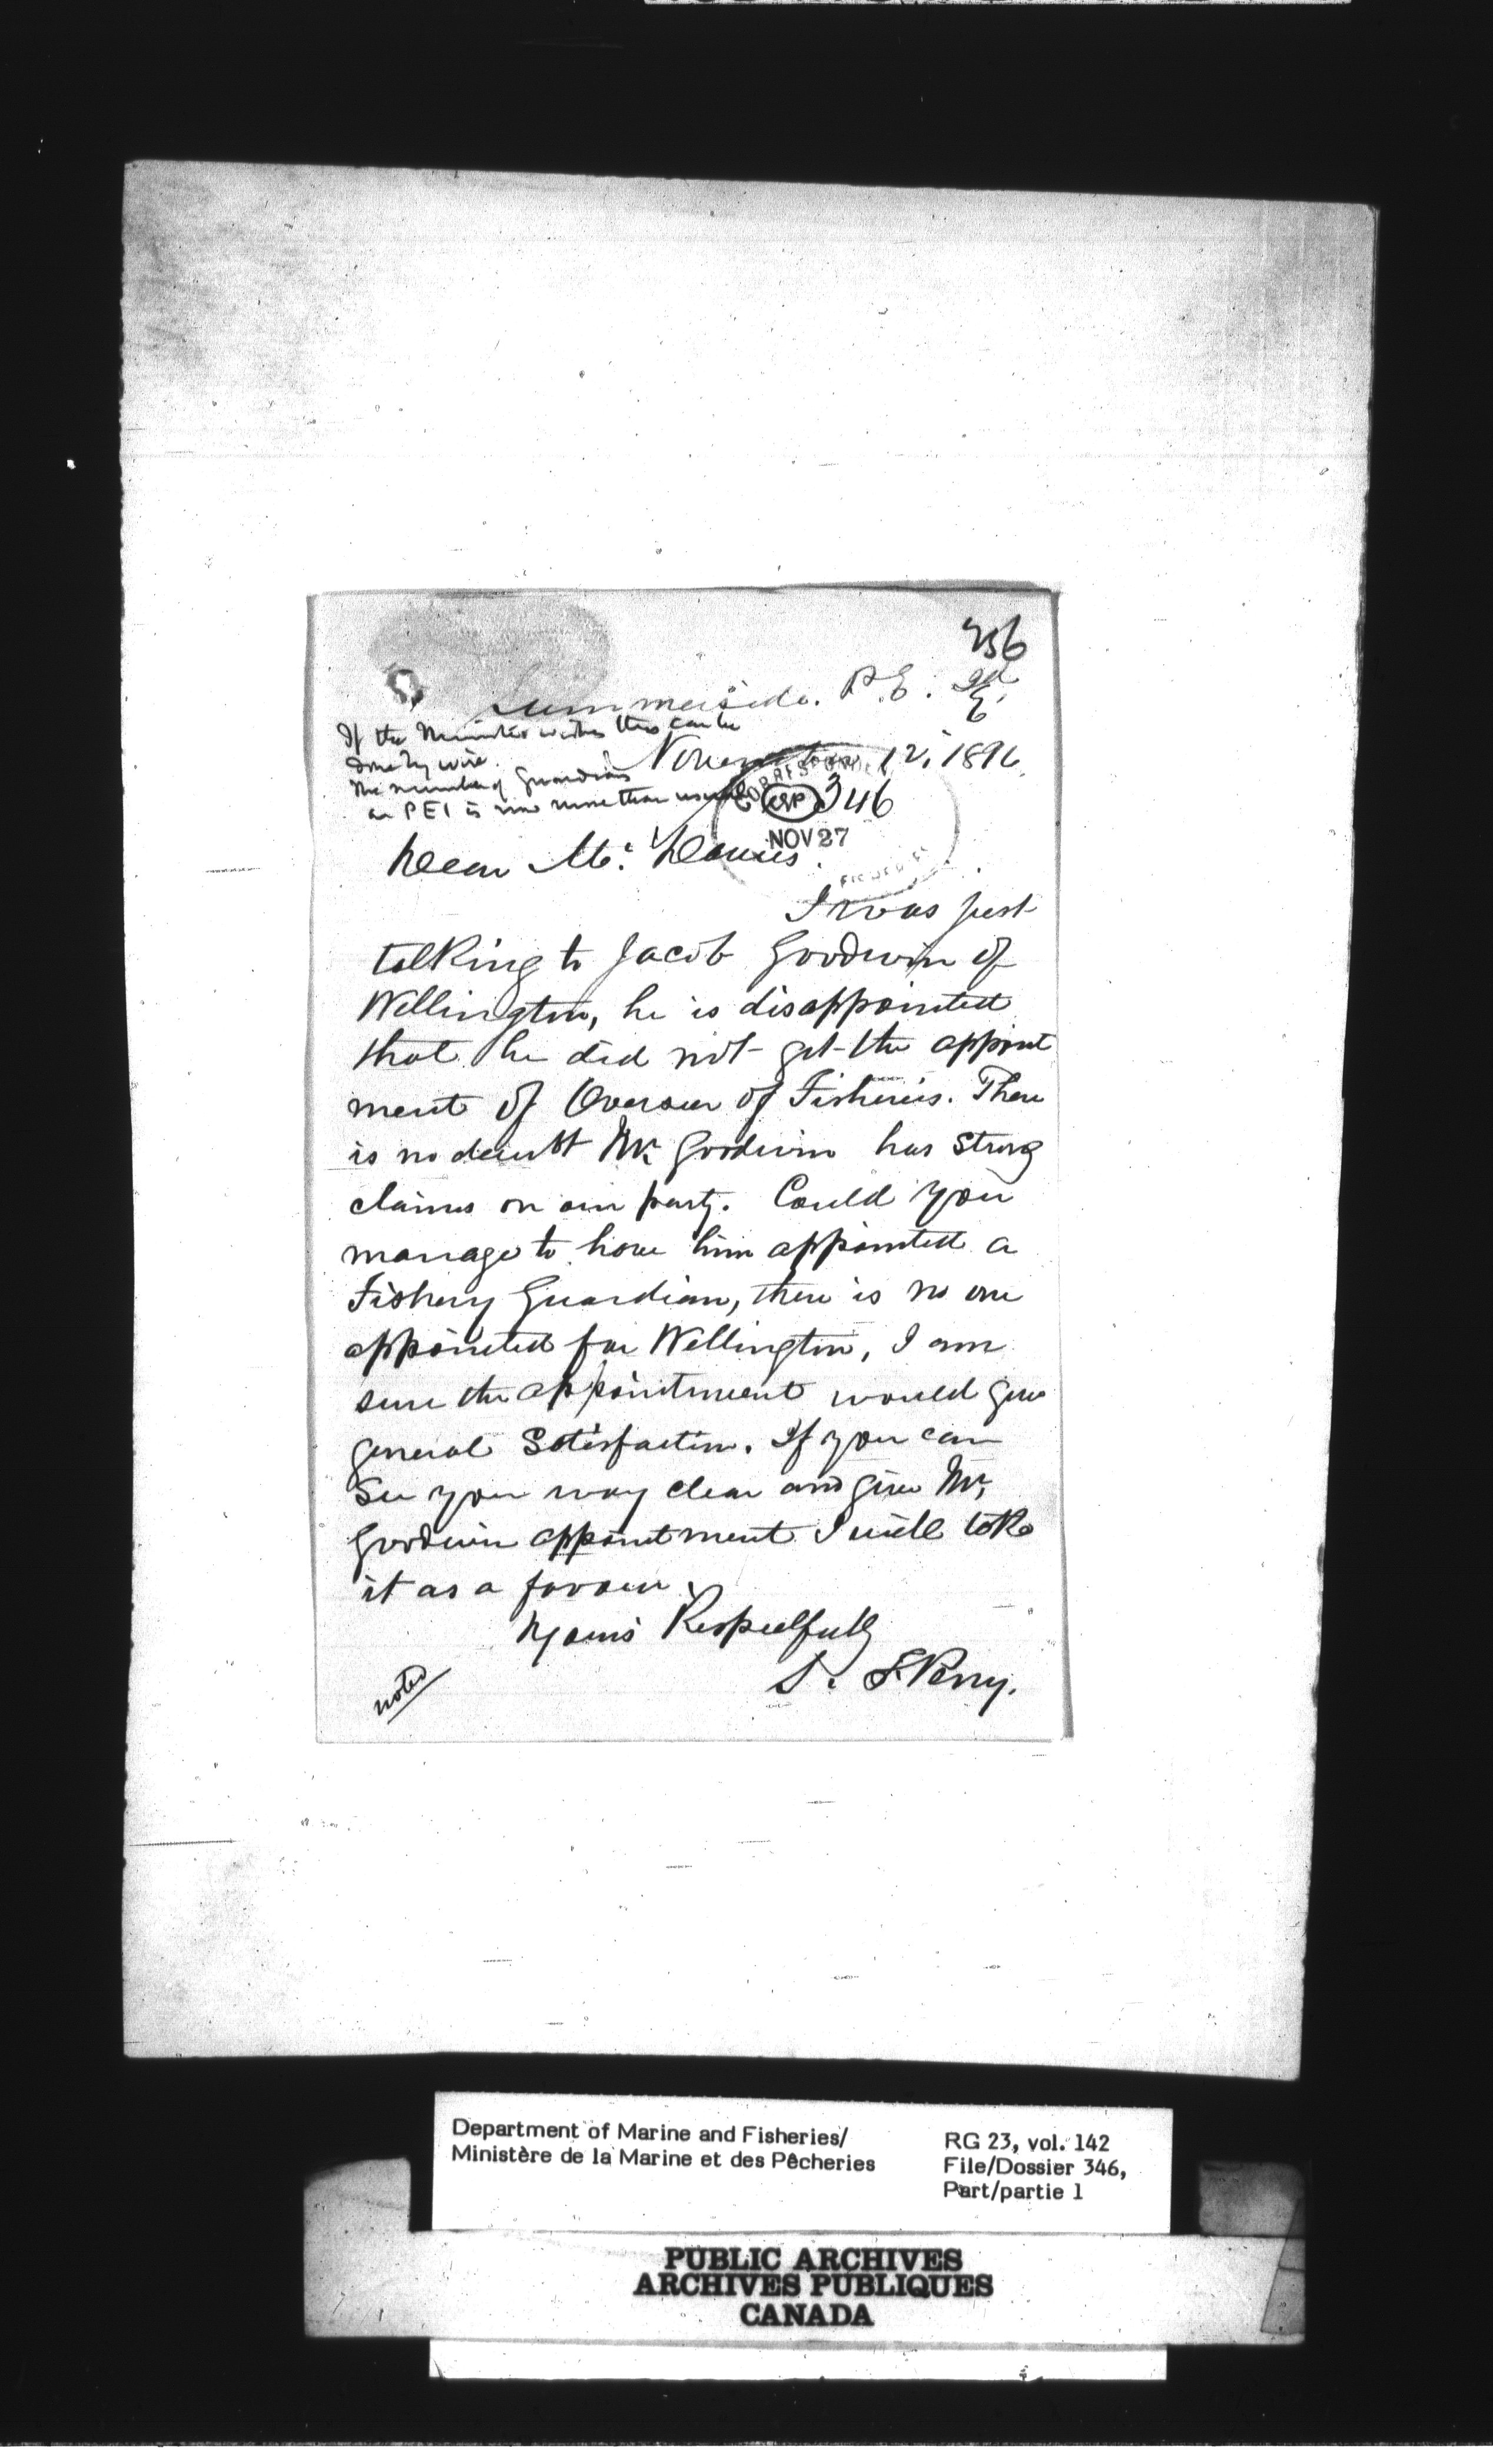 256
Summerside. P.E. Id
November 12, 1896
If the Minister wishes this can be
done by wire.
The number of Guardians
in PEI is now more than usual
CORRESPONDENCE
346
NOV 27
FISHERIES
Dear Mr. Davies.
I was just
talking to Jacob Goodwin of
Wellington, he is disappointed
that he did not get the appoint
ment of Overseer of Fisheries. There
is no doubt Mr. Goodwin has Strong
claims on our party. Could you
manage to have him appointed a
Fishery Guardian, there is no one
appointed for Wellington, I am
sure the appointment would give
general Satisfaction. If you can
See your way clear and give Mr.
Goodwin appointment I will take
it as a favour.
Yours Respectfully
S. F. Perry.
noted
Department of Marine and Fisheries/
Ministère de la Marine et des Pêcheries
RG 23, vol. 142
File/Dossier 346,
Part/partie 1
PUBLIC ARCHIVES
ARCHIVES PUBLIQUES
CANADA